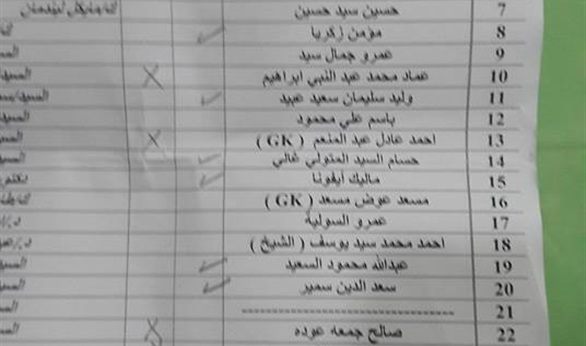 7 حسين سيد حسين
8 مؤمن زكريا
9 عمرو جمال سيد
10 عماد محمد عبد النبي ابراهيم
11 وليد سليمان سعيد عبيد
12 باسم علي محمود
13 احمد عادل عبد المنعم ( GK )
14 حسام السيد المتولي غالي
15 ماليك أيفونا
16 مسعد عوض مسعد ( GK )
17 عمرو السولية
18 احمد محمد سيد يوسف ( الشيخ )
19 عبدالله محمود السعيد
20 سعد الدين سمير
21 ------------------------------
22 صالح جمعه عوده